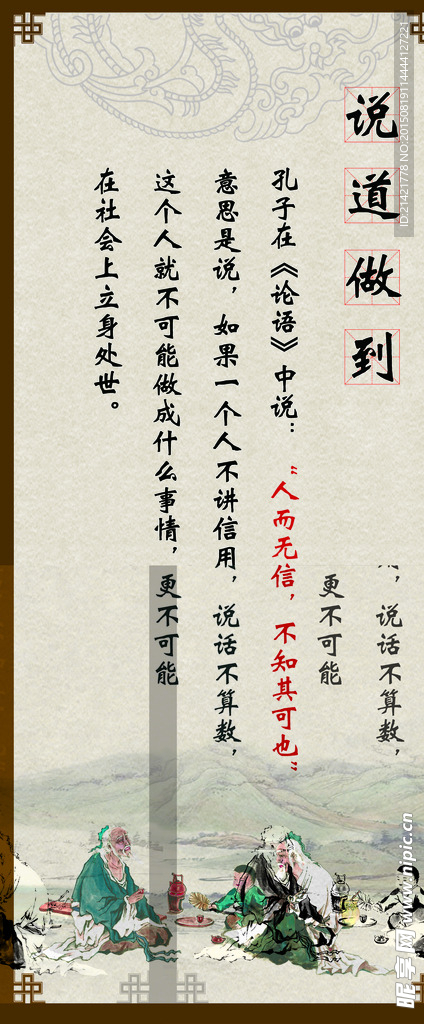 说道做到
孔子在《论语》中说：“人而无信，不知其可也”
意思是说，如果一个人不讲信用，说话不算数，
这个人就不可能做成什么事情，更不可能
在社会上立身处世。
，说话不算数，
更不可能
ID:21421778 NO:20150819114444127221
昵享网 www.nipic.cn